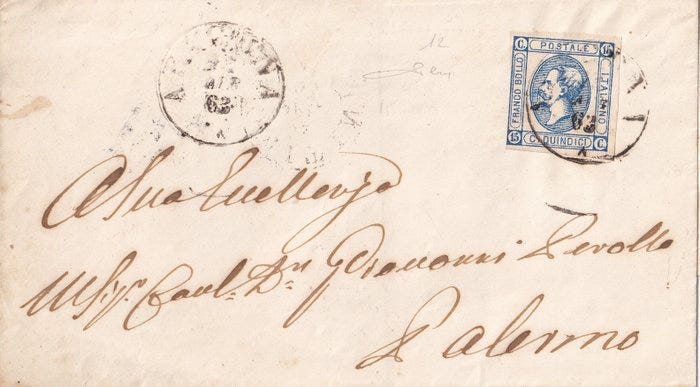 12
C. POSTALE 15
FRANCO BOLLO
ITALIANO
15 C. QUINDICI C.
APR
63
63
A Sua Eccellenza
Ill. Sigr. Cavl. Dn. Giovanni Perollo
Palermo